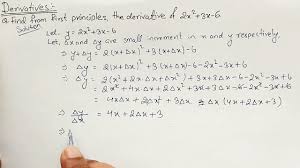 Derivatives:-
Q. find from first principles, the derivative of 2x²+3x-6
Solution
Let, y = 2x²+3x-6
Let, Δx and Δy are small increment in x and y respectively.
⇒ y+Δy = 2(x+Δx)²+3(x+Δx)-6
⇒ Δy = 2(x+Δx)²+3(x+Δx)-6-2x²-3x+6
⇒ Δy = 2(x²+2x·Δx+Δx²)+3x+3Δx-2x²-3x-6+6
= 2x²+4x·Δx+2Δx²+3x+3Δx-2x²-3x-6+6
= 4xΔx+2Δx²+3Δx = Δx(4x+2Δx+3)
⇒ Δy/Δx = 4x+2Δx+3
⇒